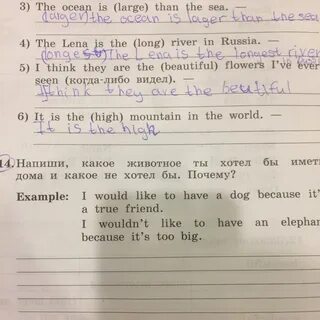 3) The ocean is (large) than the sea. —
(larger) the ocean is lager than the sea
4) The Lena is the (long) river in Russia. —
(longest) The Lena is the longest river
5) I think they are the (beautiful) flowers I've ever
seen (когда-либо видел). —
I think they are the beutiful
6) It is the (high) mountain in the world. —
It is the high
14. Напиши, какое животное ты хотел бы имет
дома и какое не хотел бы. Почему?
Example: I would like to have a dog because it'
a true friend.
I wouldn't like to have an elephan
because it's too big.